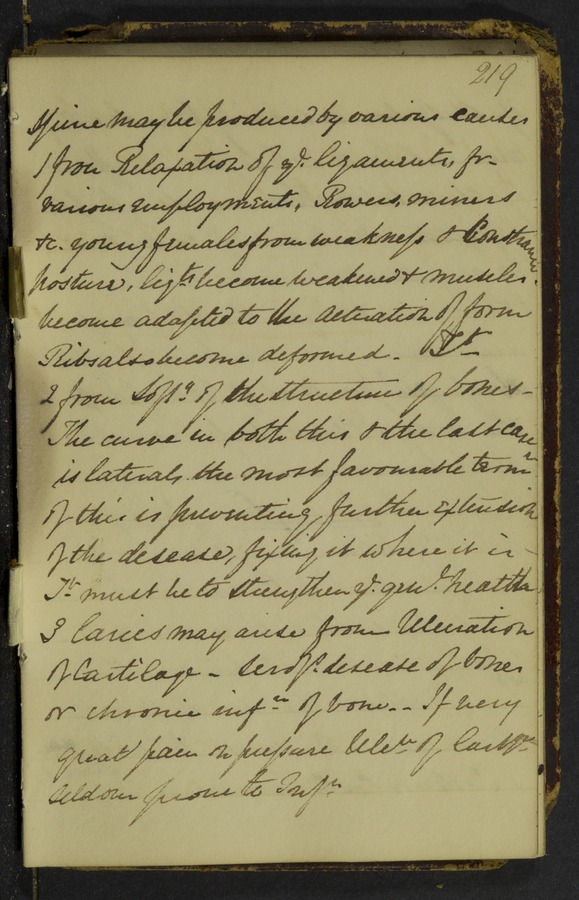 219
Spine may be produced by various causes
1 from Relaxation of ye. ligaments, fr-
various employments, Rowers, miners
&c. young females from weakness & Constrained
posture, ligts. become weakened & muscles
become adapted to the alteration of form
Ribs also become deformed -
2 from Softg. of the structure of bones -
The curve in both this & the last case
is lateral, the most favourable termn
of this is preventing further extension
of the disease, fixing it where it is -
Tt. must be to strengthen ye. genl. health
3 Caries may arise from Ulceration
of Cartilage - Scrofs. disease of bones
or chronic infn. of bone. - If very
great pain on pressure Ulcn. of Cartge.
seldom prone to